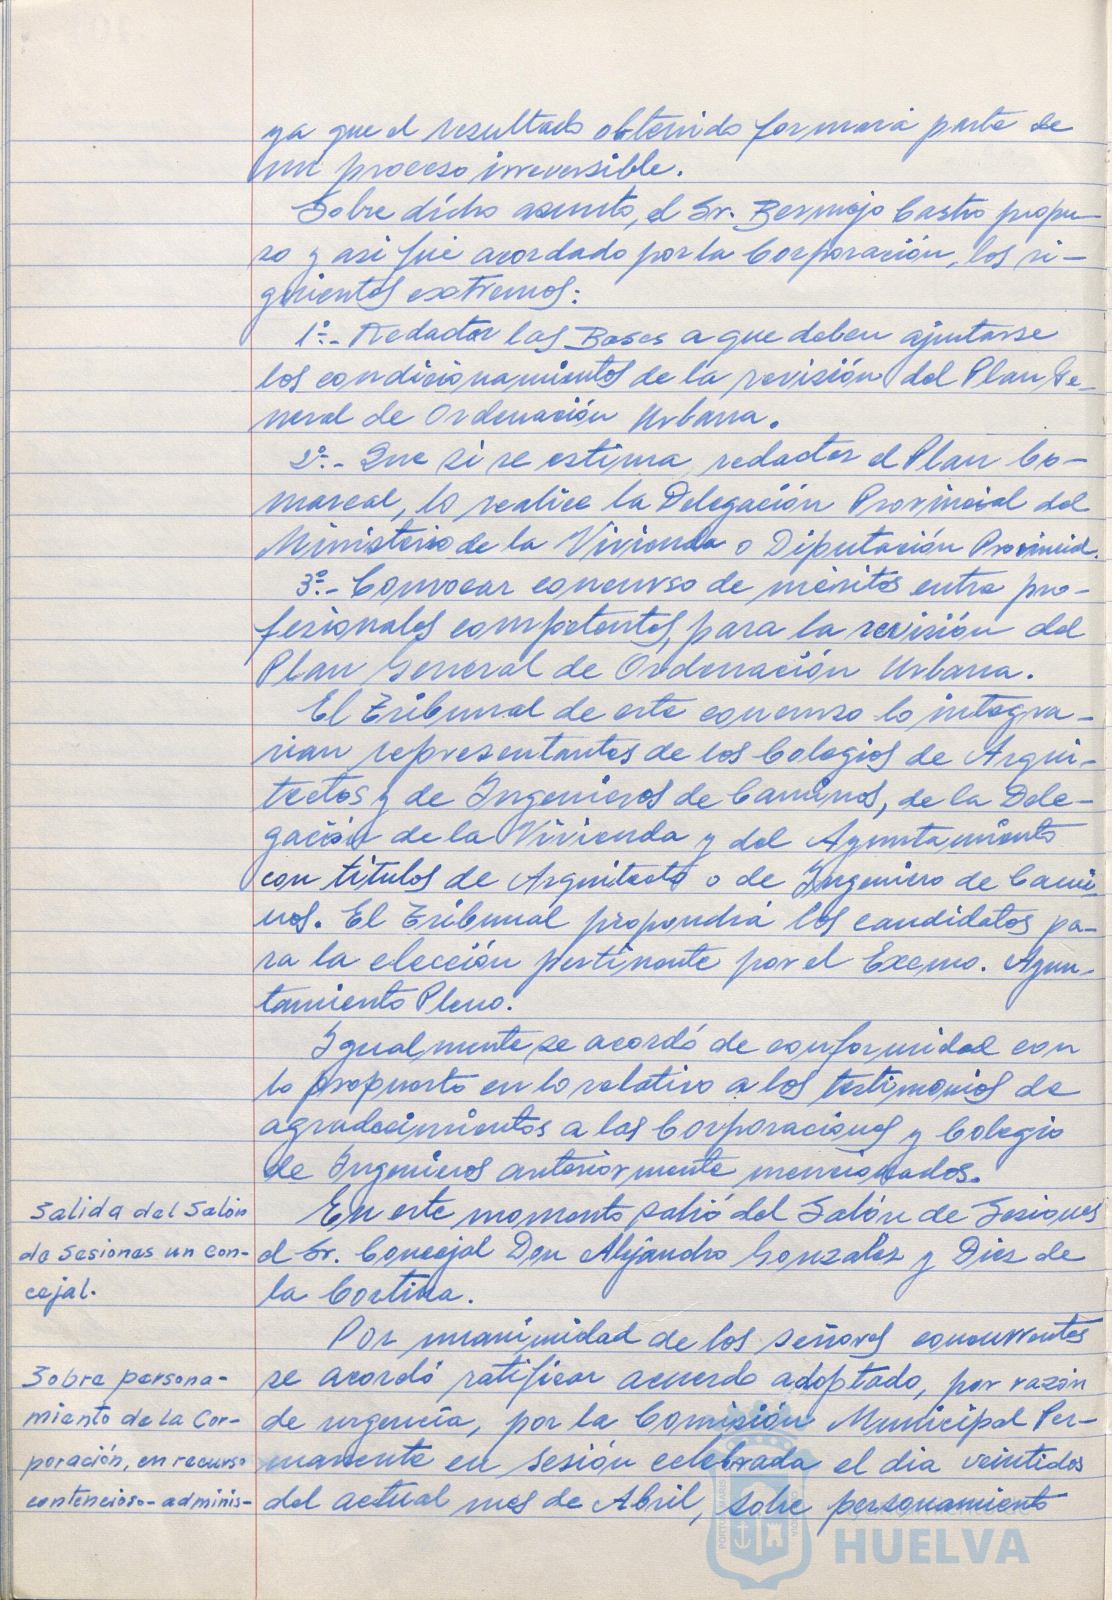 ya que el resultado obtenido formará parte de
un proceso irreversible.
Sobre dicho asunto, el Sr. Bermejo Castro propu-
so y así fué acordado por la Corporación, los si-
guientes extremos:
1º.- Redactar las Bases a que deben ajustarse
los condicionamientos de la revisión del Plan Ge-
neral de Ordenación Urbana.
2º.- Que si se estima redactar el Plan Co-
marcal, lo realice la Delegación Provincial del
Ministerio de la Vivienda o Diputación Provincial.
3º.- Convocar concurso de méritos entre pro-
fesionales competentes, para la revisión del
Plan General de Ordenación Urbana.
El Tribunal de este concurso lo integra-
rían representantes de los Colegios de Arqui-
tectos y de Ingenieros de Caminos, de la Dele-
gación de la Vivienda y del Ayuntamiento
con títulos de Arquitecto o de Ingeniero de Cami-
nos. El Tribunal propondrá los candidatos pa-
ra la elección pertinente por el Excmo. Ayun-
tamiento Pleno.
Igualmente se acordó de conformidad con
lo propuesto en lo relativo a los testimonios de
agradecimientos a las Corporaciones y Colegio
de Ingenieros anteriormente mencionados.
Salida del Salón
de Sesiones un Con-
cejal.
En este momento salió del Salón de Sesiones
el Sr. Concejal Don Alejandro Gonzalez y Diez de
la Cortina.
Sobre persona-
miento de la Cor-
poración, en recurso
contencioso-adminis-
Por unanimidad de los señores concurrentes
se acordó ratificar acuerdo adoptado, por razón
de urgencia, por la Comisión Municipal Per-
manente en sesión celebrada el dia veintidos
del actual mes de Abril, sobre personamiento
HUELVA